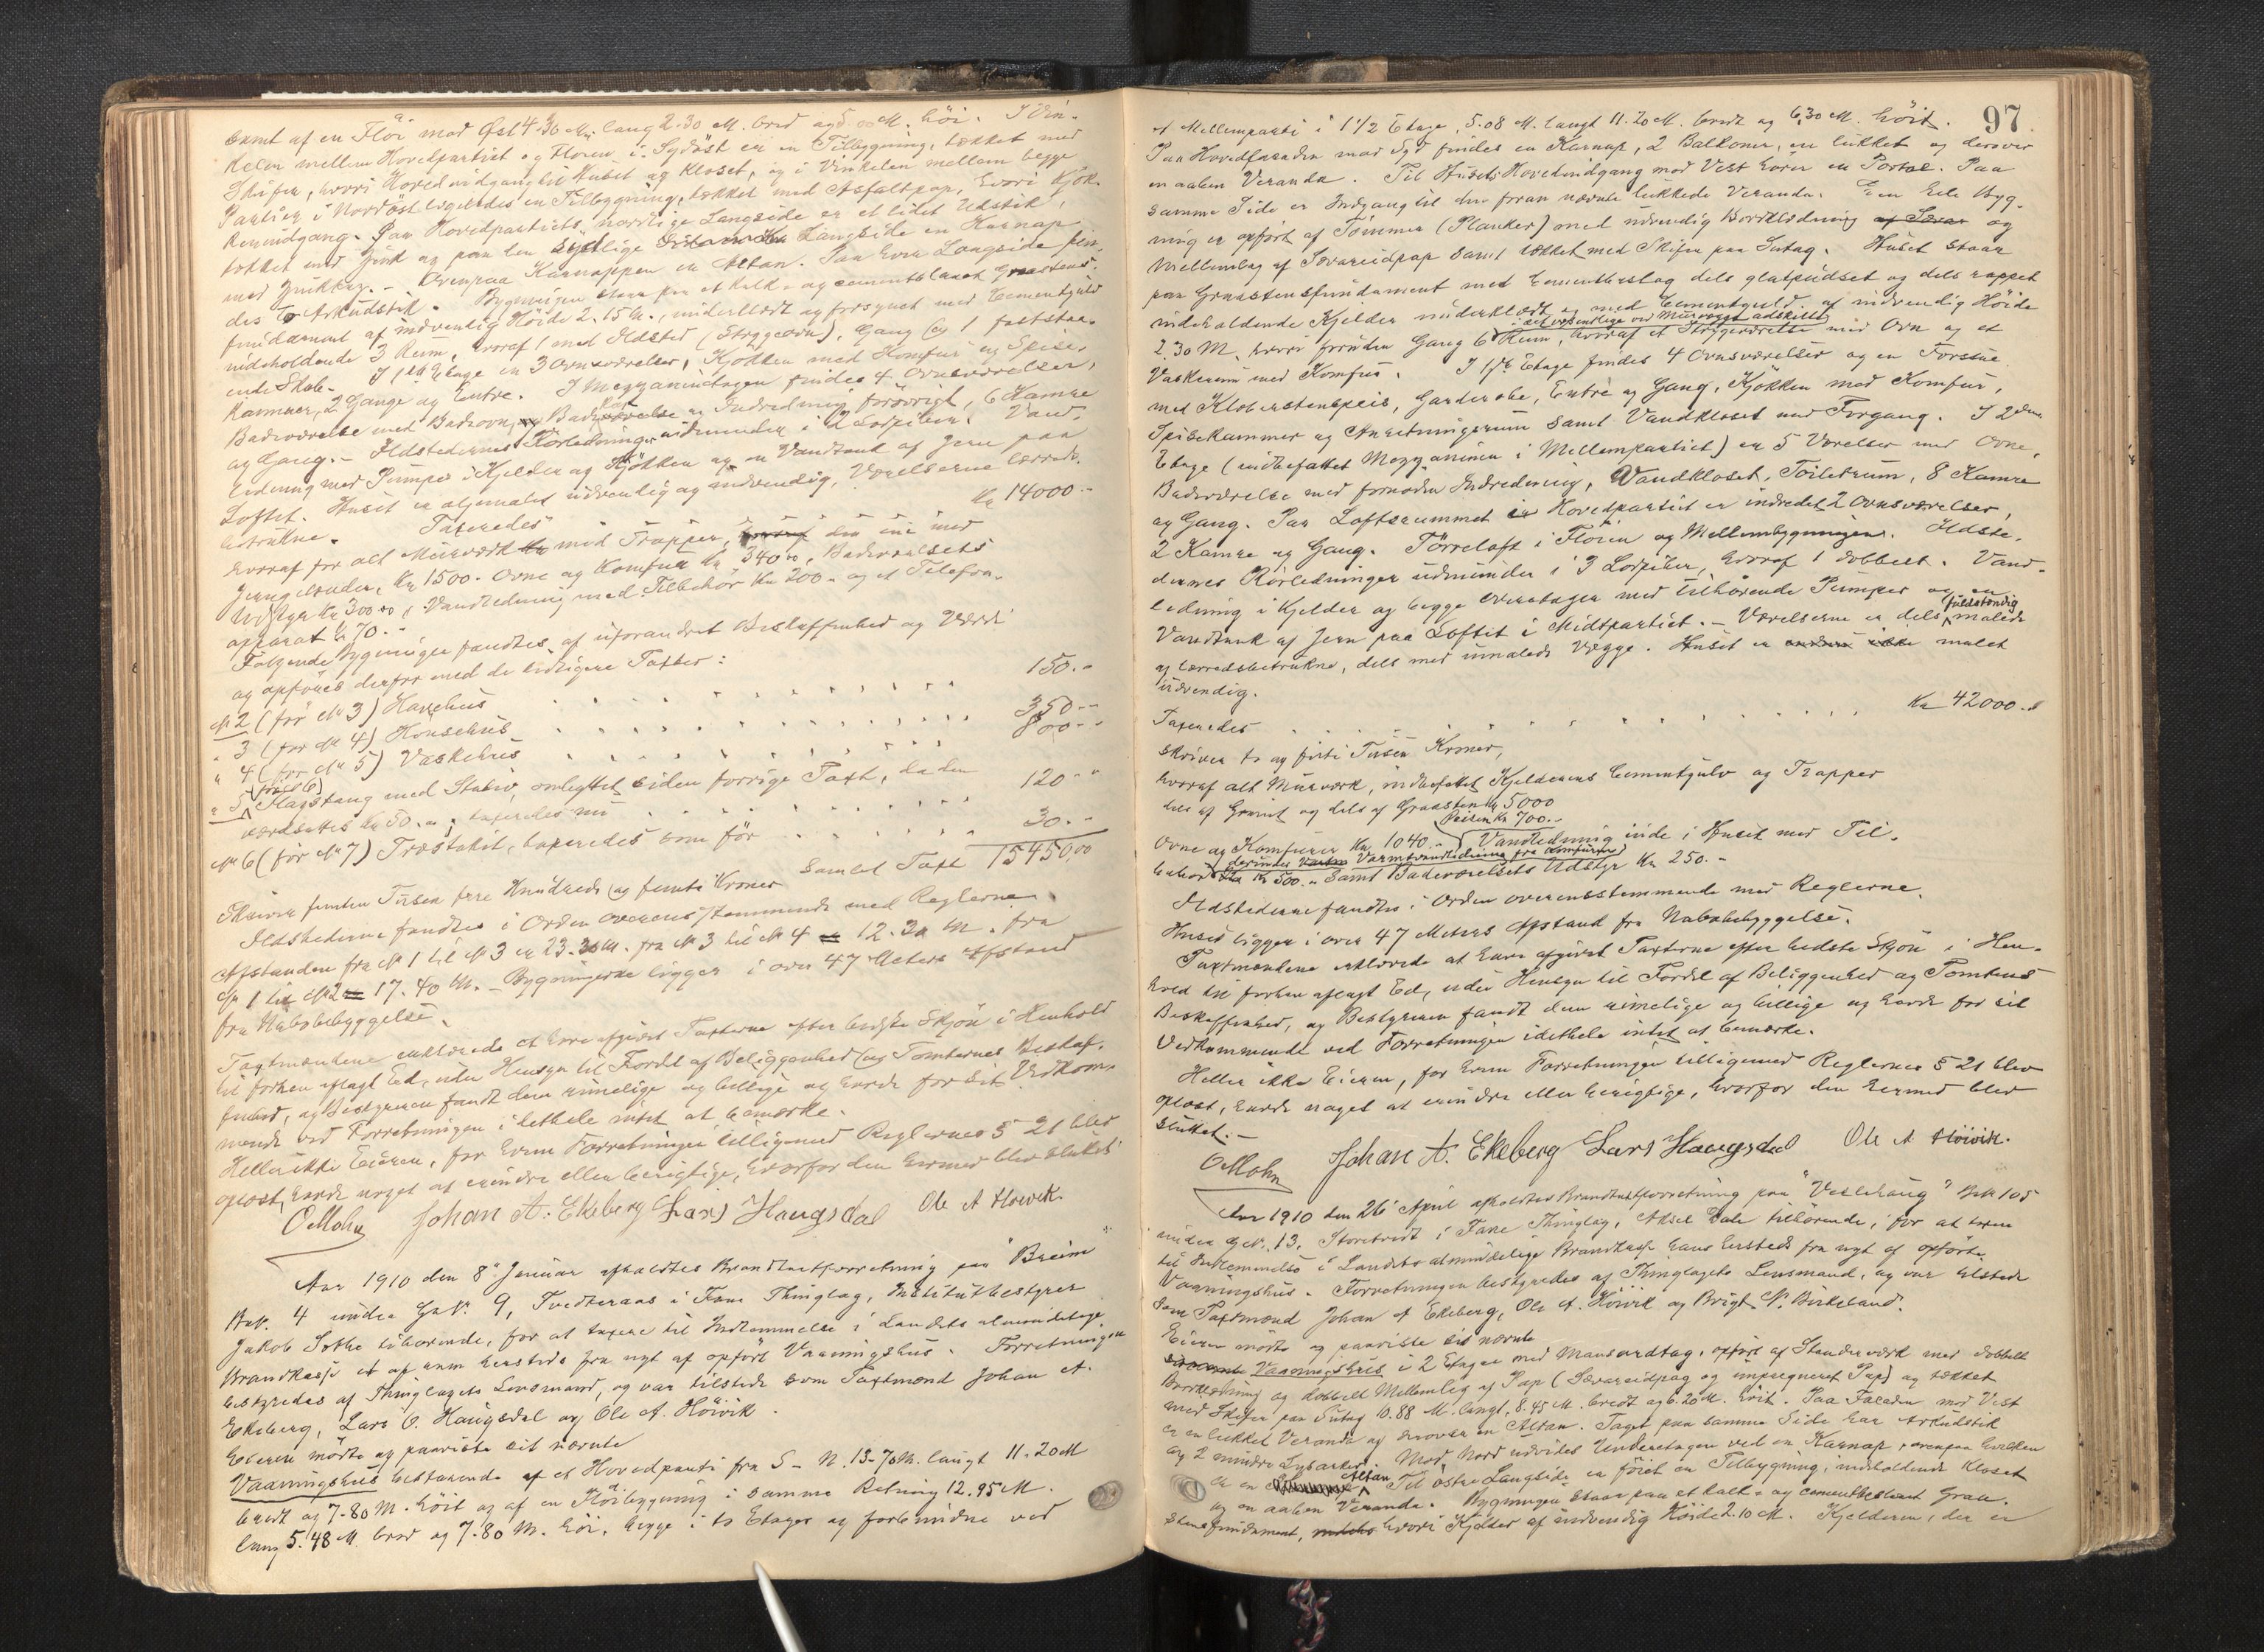 samt af en Fløi mod Øst 4.30 M. lang 2.30 M. bred og 5.00 M. høi. I Vin-
kelen mellem Hovedpartiet og Floien i Sydøst er en Tilbygning, tækket med
Skifer, hvori Hovedindgang til Huset og Kloset, og i Vinkelen mellem begge
Partier i Nordøst ligeledes en Tilbygning, tækket med Asfaltpap, hvori Kjøk-
kenindgang. Paa Hovedpartiets nordlige Langside er et lidet Udstik,
tækket med Zink og paa den sydlige Langside en Karnap
med Zinktag. - Ovenpaa Karnappen en Altan. Paa hver Langside fin-
des to Arkudstik. Bygningen staar paa et kalk- og cementslaaet Graastens-
fundament af indvendig Høide 2.15 M., underklædt og forsynet med Cementgulv
indeholdende 3 Rum, hvoraf 1 med Ildsted (Strygeovn), Gang og 1 faststaa-
ende Skab. I 1ste Etage er 3 Ovnsværelser, Kjøkken med Komfur og Spise-
kammer, 2 Gange og Entre. I Mezzaninetagen findes 4 Ovnsværelser,
Badeværelse med Badeovn, Badekar og Indredning forøvrigt, 6 Kamre
og Gang. - Ildstedernes Rørledninger udmunder i 2 Lodpiber. Vand-
ledning med Pumper i Kjelder og Kjøkken og en Vandtank af Jern paa
Loftet. Huset er oljemalet udvendig og indvendig, Værelserne lærreds-
betrukne. Taxeredes Kr 14000.-
hvoraf for alt Murværk med Trapper, den ene med
Jerngelender, Kr 1500.- Ovne og Komfur Kr 340.00, Badeværelsets
Udstyr Kr 300.00, Vandledning med Tilbehør Kr 200.- og et Telefon-
apparat Kr 70.-
Følgende Bygninger fandtes af uforandret Beskaffenhed og Værdi
og opføres derfor med de tidligere Taxter:
No 2 (før No 3) Havehus 150.-
" 3 (før No 4) Hønsehus 350.-
" 4 (før No 5) Vaskehus 800.-
" 5 (før No 6) Flagstang med Stativ, omflyttet siden forrige Taxt, da den
værdsattes Kr 50.-, taxeredes nu 120.-
No 6 (før No 7) Træstakit, taxeredes som før 30.-
Samlet Taxt 15450,00
Skriver femten Tusen fire Hundrede og femti Kroner
Ildstederne fandtes i Orden overensstemmende med Reglerne.
Afstanden fra No 1 til No 3 er 23.30 M. fra No 3 til No 4 = 12.30 M. fra
No 1 til No 2 = 17.40 M. - Bygningerne ligger i over 47 Meters Afstand
fra Nabobebyggelse.
Taxtmændene erklærede at have afgivet Taxterne efter bedste Skjøn i Henhold
til forhen aflagt Ed, uden Hensyn til Fordel af Beliggenhed og Tomternes Beskaf-
fenhed, og Bestyreren fandt dem rimelige og billige og havde for sit Vedkom-
mende ved Forretningen idethele intet at bemærke.
Heller ikke Eieren, for hvem Forretningen tilligemed Reglernes § 21 blev
oplæst, havde noget at erindre eller berigtige, hvorfor den hermed blev sluttet.
OMohn Johan A. Ekeberg Lars Haugsdal Ole A Høivik.
Aar 1910 den 8de Januar afholdtes Brandtaxtforretning paa "Breim"
Bno. 4 under Gno. 9, Tvedteraas i Fane Thinglag, Institutbestyrer
Jakob Sothe tilhørende, for at taxere til Indlemmelse i Landets almindelige
Brandkasse et af ham hersteds fra nyt af opført Vaaningshus. Forretningen
bestyredes af Thinglagets Lensmand, og var tilstede som Taxtmænd Johan A.
Ekeberg, Lars O. Haugsdal og Ole A. Høivik.
Eieren mødte og paaviste sit nævnte
Vaaningshus bestaaende af et Hovedparti fra S - N. 13.70 M. langt 11.20 M
bredt og 7.80 M. høit og af en Fløibygning i samme Retning 12.95 M.
lang 5.48 M. bred og 7.80 M. høi, begge i to Etager og forbundne ved
97
et Mellemparti i 1 1/2 Etage, 5.08 M. langt 11.20 M. bredt og 6.30 M. høit.
Paa Hovedfasaden mod Syd findes en Karnap, 2 Balkoner, en lukket og derover
en aaben Veranda. Til Husets Hovedindgang mod Vest hører en Portal. Paa
samme Side er Indgang til den foran nævnte lukkede Veranda. Den hele Byg-
ning er opført af Tømmer (Planker) med udvendig Bordklædning og
Mellemlag af Sævareidpap samt tækket med Skifer paa Sutag. Huset staar
paa Graastensfundament med Cementbeslag dels glatpudset og dels rappet
indeholdende Kjelder underklædt og med Cementgulv af indvendig Høide
2.30 M. hvori foruden Gang 6 i det væsentlige ved Murvægge adskilte Rum, hvoraf et Strygeværelse med Ovn og et
Vaskerum med Komfur. I 1ste Etage findes 4 Ovnsværelser og en Forstue
med Kleberstenspeis, Garderobe, Entré og Gang, Kjøkken med Komfur,
Spisekammer og Anretningsrum samt Vandkloset med Forgang. I 2den
Etage (indbefattet Mezzaninen i Mellempartiet) er 5 Værelser med Ovne,
Badeværelse med fornøden Indredning, Vandkloset, Toiletrum, 8 Kamre
og Gang. Paa Loftsrummet i Hovedpartiet er indredet 2 Ovnsværelser,
2 Kamre og Gang. Tørreloft i Fløien og Mellembygningen. Ildste-
dernes Rørledninger udmunder i 3 Lodpiber, hvoraf 1 dobbelt. Vand-
ledning i Kjelder og begge Overetager med tilhørende Pumper og en
Vandtank af Jern paa Loftet i Midtpartiet. - Værelserne er dels fuldstændig malede
og lærredsbetrukne, dels med umalede Vægge. Huset er malet
udvendig.
Taxeredes Kr 42000.-
skriver to og firti Tusen Kroner,
hvoraf alt Murværk, indbefattet Kjelderens Cementgulv og Trapper
dels af Granit og dels af Graasten Kr 5000
Peisen Kr 700.-
Ovne og Komfurer Kr 1040.- Vandledning inde i Huset med Til-
behør derunder Varmtvandledning fra Komfuren Kr 500.- samt Badeværelsets Udstyr Kr 250.-
Ildstederne fandtes i Orden overensstemmende med Reglerne.
Huset ligger i over 47 Meters Afstand fra Nabobebyggelse.
Taxtmændene erklærede at have afgivet Taxterne efter bedste Skjøn i Hen-
hold til forhen aflagt Ed, uden Hensyn til Fordel af Beliggenhed og Tomtens
Beskaffenhed, og Bestyreren fandt dem rimelige og billige og havde for sit
Vedkommende ved Forretningen idethele intet at bemærke.
Heller ikke Eieren, for hvem Forretningen tilligemed Reglernes § 21 blev
oplæst, havde noget at erindre eller berigtige, hvorfor den hermed blev
sluttet. -
OMohn Johan A. Ekeberg Lars Haugsdal Ole A Høivik.
Aar 1910 den 26 April afholdtes Brandtaxtforretning paa "Veslehaug" Bno 105
under Gno. 13. Storetvedt i Fane Thinglag, Aksel tilhørende, for at taxere
til Indlemmelse i Landets almindelige Brandkasse hans hersteds fra nyt af opførte
Vaaningshus. Forretningen bestyredes af Thinglagets Lensmand, og var tilstede
som Taxtmænd Johan A Ekeberg, Ole A. Høivik og Brigt N. Birkeland.
Eieren mødte og paaviste sit nævnte
Vaaningshus i 2 Etager med Mansardtag, opført af Stenderværk med dobbelt
Bordklædning og dobbelt Mellemlag af Pap (Sævareidpap og impregneret Pap) og tækket
med Skifer paa Sutag 10.88 M. langt, 8.45 M. bredt og 6.20 M. høit. Paa Facaden mod Vest
er en lukket Veranda og derover en Altan. Taget paa samme Side har Arkudstik
og 2 mindre Lysarker. Mod Nord udvides Underetagen ved en Karnap, ovenpaa hvilken
er en Altan. Til østre Langside er føiet en Tilbygning, indeholdende Kloset
og en aaben Veranda. Bygningen staar paa et kalk- og cementbeslaaet Graa-
stensfundament, hvori Kjelder af indvendig Høide 2.10 M. Kjelderen, der er